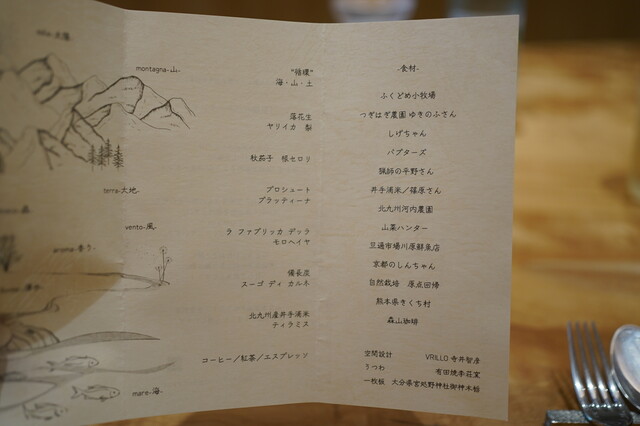 montagna-山-
terra-大地
vento-風-
mare-海-
"循環"
海・山・土
落花生
ヤリイカ 梨
秋茄子 根セロリ
プロシュート
ブラッティーナ
ラ ファブリッカ デッラ
モロヘイヤ
備長炭
スーゴ ディ カルネ
北九州産井手浦米
ティラミス
コーヒー/紅茶/エスプレッソ
-食材-
ふくどめ小牧場
つぎはぎ農園 ゆきのふさん
しげちゃん
バプターズ
猟師の平野さん
井手浦米/篠原さん
北九州河内農園
山菜ハンター
旦過市場川原鮮魚店
京都のしんちゃん
自然栽培 原点回帰
熊本県きくち村
森山珈琲
空間設計 VRILLO 寺井智彦
うつわ 有田焼李荘窯
一枚板 大分県宮処野神社御神木杉